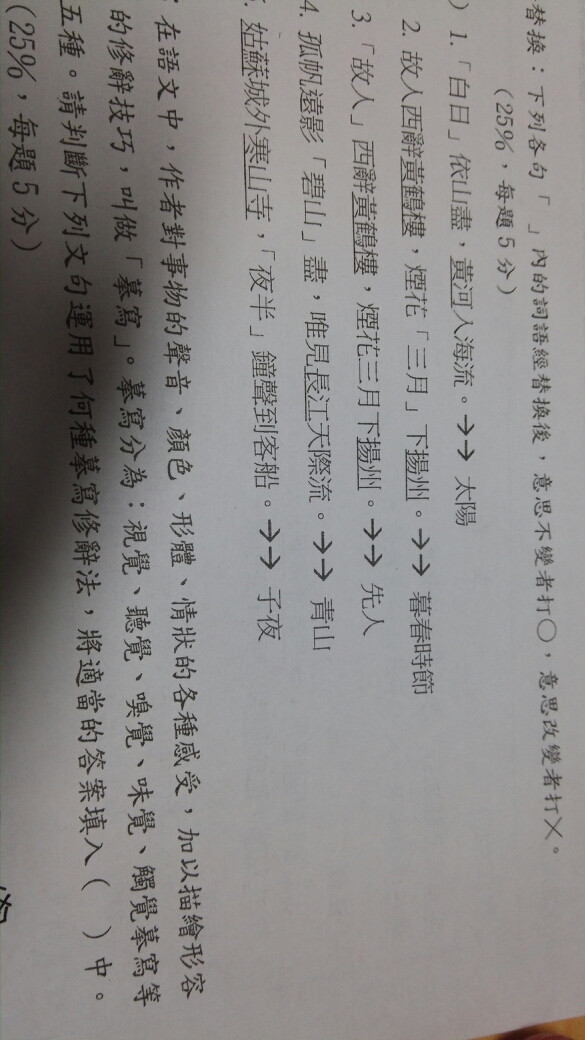 替換：下列各句「 」內的詞語經替換後，意思不變者打○，意思改變者打╳。
（25%，每題5分）
）1.「白日」依山盡，黃河入海流。→→ 太陽
2. 故人西辭黃鶴樓，煙花「三月」下揚州。→→ 暮春時節
3.「故人」西辭黃鶴樓，煙花三月下揚州。→→ 先人
4. 孤帆遠影「碧山」盡，唯見長江天際流。→→ 青山
姑蘇城外寒山寺，「夜半」鐘聲到客船。→→ 子夜
在語文中，作者對事物的聲音、顏色、形體、情狀的各種感受，加以描繪形容
的修辭技巧，叫做「摹寫」。摹寫分為：視覺、聽覺、嗅覺、味覺、觸覺摹寫等
五種。請判斷下列文句運用了何種摹寫修辭法，將適當的答案填入（ ）中。
（25%，每題5分）